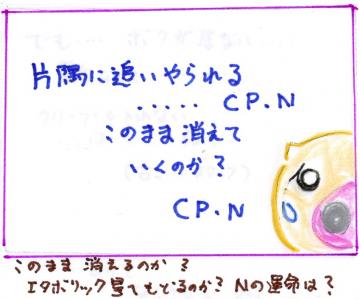 片隅に追いやられる
..... CP.N
このまま消えて
いくのか?
CP.N
このまま消えるのか?
イタボリック星へもどるのか? Nの運命は?